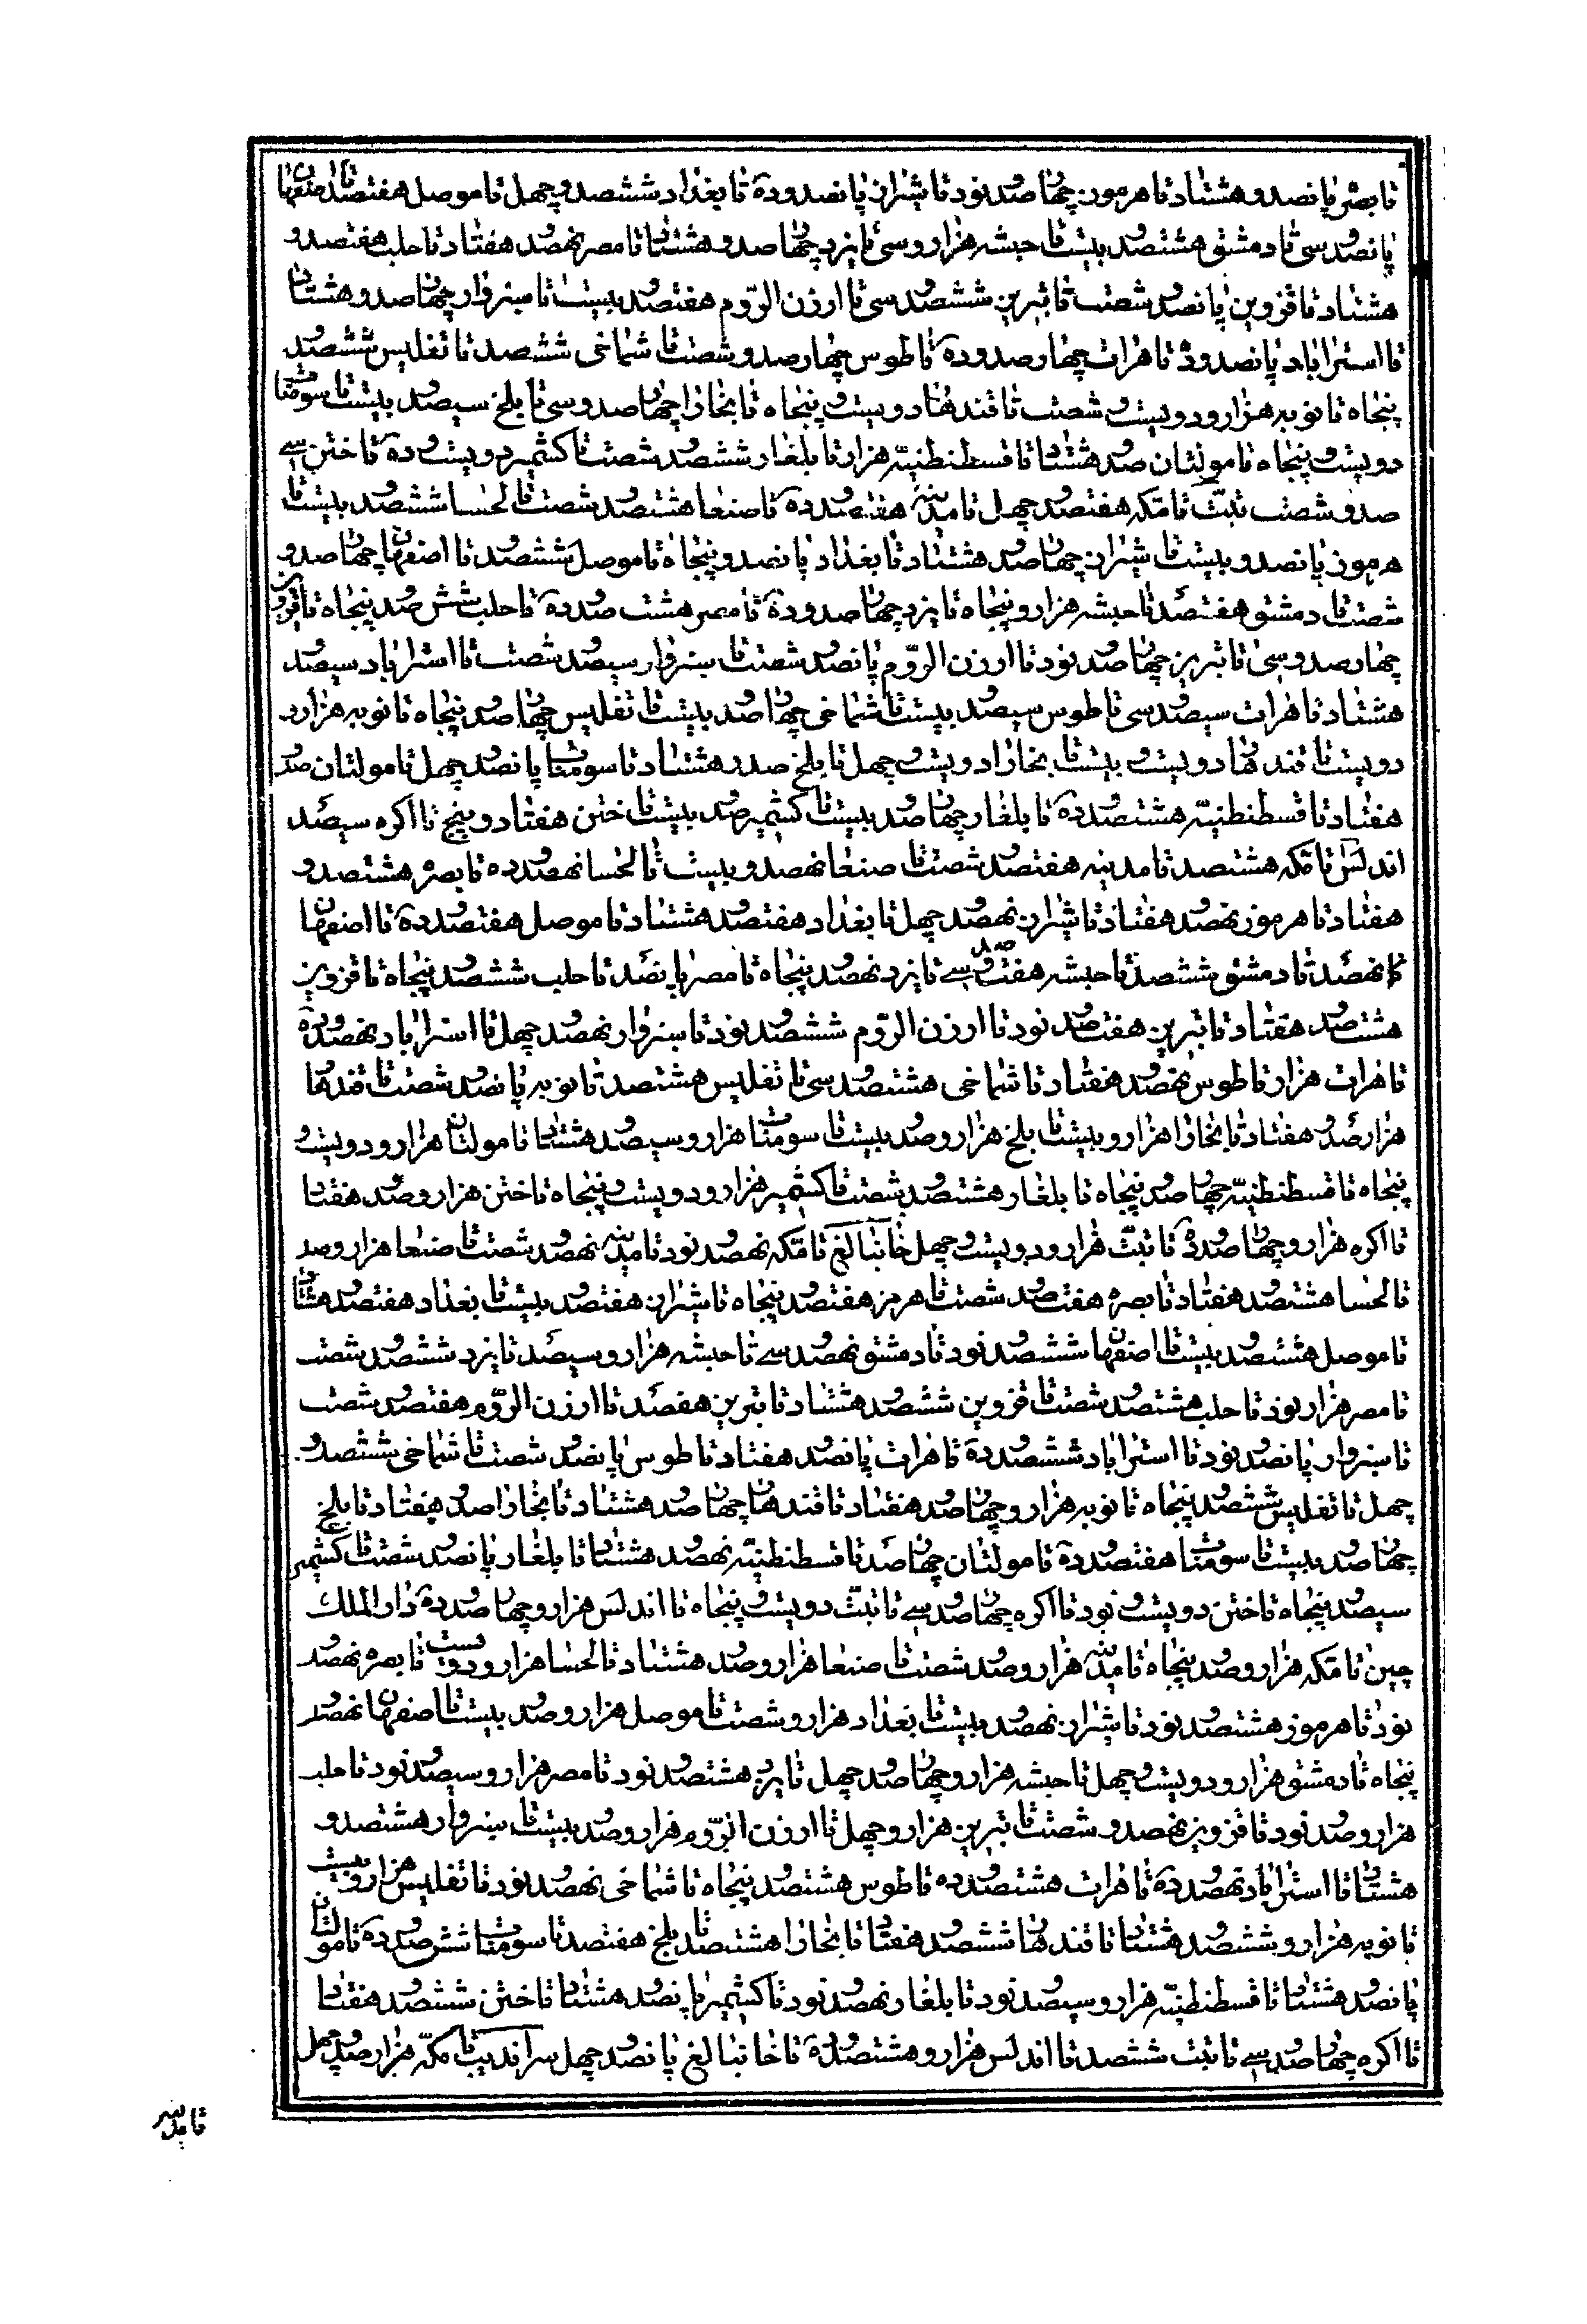 تا بصره پانصد و هشتاد تا هرموز چهار صد و نود تا شیراز پانصد و ده تا بغداد ششصد و چهل تا موصل هفتصد تا اصفهان
پانصد و سی تا دمشق هشتصد و بیست تا حبشه هزار و سی تا یزد چهار صد و هشتاد تا مصر نهصد و هفتاد تا حلب هفتصد و
هشتاد تا قزوین پانصد و شصت تا تبریز ششصد و سی تا ارزن الروم هفتصد و بیست تا سبزوار چهار صد و هشتاد
تا استراباد پانصد و ده تا هرات چهار صد و ده تا طوس چهار صد و شصت تا شماخی ششصد تا تفلیس ششصد و
پنجاه تا نوبه هزار و دویست و شصت تا قندهار دویست و پنجاه تا بخارا چهار صد و سی تا بلخ سیصد و بیست تا سومنات
دویست و پنجاه تا مولتان صد و هشتاد تا قسطنطنیه هزار تا بلغار ششصد و شصت تا کشمیر دویست و ده تا ختن سی
صد و شصت تبت تا مکه هفتصد و چهل تا مدینه هفتصد و ده تا صنعا هشتصد و شصت تا لحسا ششصد و بیست تا
هرموز پانصد و بیست تا شیراز چهار صد و هشتاد تا بغداد پانصد و پنجاه تا موصل ششصد و تا اصفهان چهار صد و
شصت تا دمشق هفتصد تا حبشه هزار و پنجاه تا یزد چهار صد و ده تا مصر هشت صد و ده تا حلب شش صد و پنجاه تا قزوین
چهار صد و سی تا تبریز چهار صد و نود تا ارزن الروم پانصد و شصت تا سبزوار سیصد و شصت تا استراباد سیصد و
هشتاد تا هرات سیصد و سی تا طوس سیصد و بیست تا شماخی چهار صد و بیست تا تفلیس چهار صد و پنجاه تا نوبه هزار و
دویست تا قندهار دویست و بیست تا بخارا دویست و چهل تا بلخ صد و هشتاد تا سومنات پانصد و چهل تا مولتان صد و
هفتاد تا قسطنطنیه هشتصد و ده تا بلغار چهار صد و بیست تا کشمیر صد و بیست تا ختن هفتاد و پنج تا اکره سیصد
اندلس تا مکه هشتصد تا مدینه هفتصد و شصت تا صنعا نهصد و بیست تا لحسا نهصد و ده تا بصره هشتصد و
هفتاد تا هرموز نهصد و هفتاد تا شیراز نهصد و چهل تا بغداد هفتصد و هشتاد تا موصل هفتصد و ده تا اصفهان
نهصد تا دمشق ششصد تا حبشه هفتصد و سی تا یزد نهصد و پنجاه تا مصر پانصد تا حلب ششصد و پنجاه تا قزوین
هشت صد و هفتاد تا تبریز هفت صد و نود تا ارزن الروم ششصد و نود تا سبزوار نهصد و چهل تا استراباد نهصد و ده
تا هرات هزار تا طوس نهصد و هفتاد تا شماخی هشتصد و سی تا تفلیس هشتصد تا نوبه پانصد و شصت تا قندهار
هزار صد و هفتاد تا بخارا هزار و بیست تا بلخ هزار و صد و بیست تا سومنات هزار و سیصد و هشتاد تا مولتان هزار و دویست و
پنجاه تا قسطنطنیه چهار صد و پنجاه تا بلغار هشتصد و شصت تا کشمیر هزار و دویست و پنجاه تا ختن هزار و صد و هفتاد
تا اکره هزار و چهار صد و ده تا تبت هزار و دویست و چهل خانبالغ تا مکه نهصد و نود تا مدینه نهصد و شصت تا صنعا هزار و صد
تا لحسا هشتصد و هفتاد تا بصره هفت صد و شصت تا هرمز هفتصد و پنجاه تا شیراز هفتصد و بیست تا بغداد هفتصد و هشتاد
تا موصل هشتصد و بیست تا اصفهان ششصد و نود تا دمشق نهصد و سی تا حبشه هزار و سیصد تا یزد ششصد و شصت
تا مصر هزار نود تا حلب هشتصد و شصت تا قزوین ششصد و هشتاد تا تبریز هفصد تا ارزن الروم هفتصد و شصت
تا سبزوار پانصد و نود تا استراباد ششصد و ده تا هرات پانصد و هفتاد تا طوس پانصد و شصت تا شماخی ششصد و
چهل تا تفلیس ششصد و پنجاه تا نوبه هزار و چهار صد و هفتاد تا قندهار چهار صد و هشتاد تا بخارا صد و هفتاد تا بلخ
چهار صد و بیست تا سومنات هفتصد و ده تا مولتان چهار صد تا قسطنطنیه نهصد و هشتاد تا بلغار پانصد و شصت تا کشمیر
سیصد و پنجاه تا ختن دویست و نود تا اکره چهار صد و سی تا تبت دویست و پنجاه تا اندلس هزار و چهار صد و ده دار الملک
چین تا مکه هزار و صد و پنجاه تا مدینه هزار و صد و شصت تا صنعا هزار و صد و هشتاد تا لحسا هزار و دویست تا بصره نهصد و
نود تا هرموز هشتصد و نود تا شیراز نهصد و بیست تا بغداد هزار و شصت تا موصل هزار و صد و بیست تا اصفهان نهصد و
پنجاه تا دمشق هزار و دویست و چهل تا حبشه هزار و چهار صد و چهل تا یزد هشتصد و نود تا مصر هزار و سیصد و نود تا حلب
هزار و صد و نود تا قزوین نهصد و شصت تا تبریز هزار و چهل تا ارزن الروم هزار و صد و بیست تا سبزوار هشتصد و
هشتاد تا استراباد نهصد و ده تا هرات هشتصد و ده تا طوس هشتصد و پنجاه تا شماخی نهصد و نود تا تفلیس هزار و بیست
تا نوبه هزار و ششصد و هشتاد تا قندهار ششصد و هفتاد تا بخارا هشتصد تا بلخ هفتصد تا سومنات شش صد و ده تا مولتان
پانصد و هشتاد تا قسطنطنیه هزار و سیصد و نود تا بلغار نهصد و نود تا کشمیر پانصد و هشتاد تا ختن ششصد و هفتاد
تا اکره چهار صد و سی تا تبت ششصد تا اندلس هزار و هشتصد و ده تا خانبالغ پانصد و چهل سراندیب تا مکه هزار صد و چهل
تا مدینه